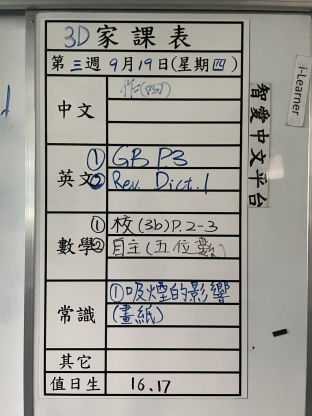 3D家課表
第三週9月19日(星期四)
中文
作(四)
英文
① GB P.3
② Rev. Dict. 1
數學
① 校(3b)P.2-3
② 自主(五位數)
常識
①吸煙的影響
(畫紙)
其它
值日生 16.17
智愛中文平台
i-Learner